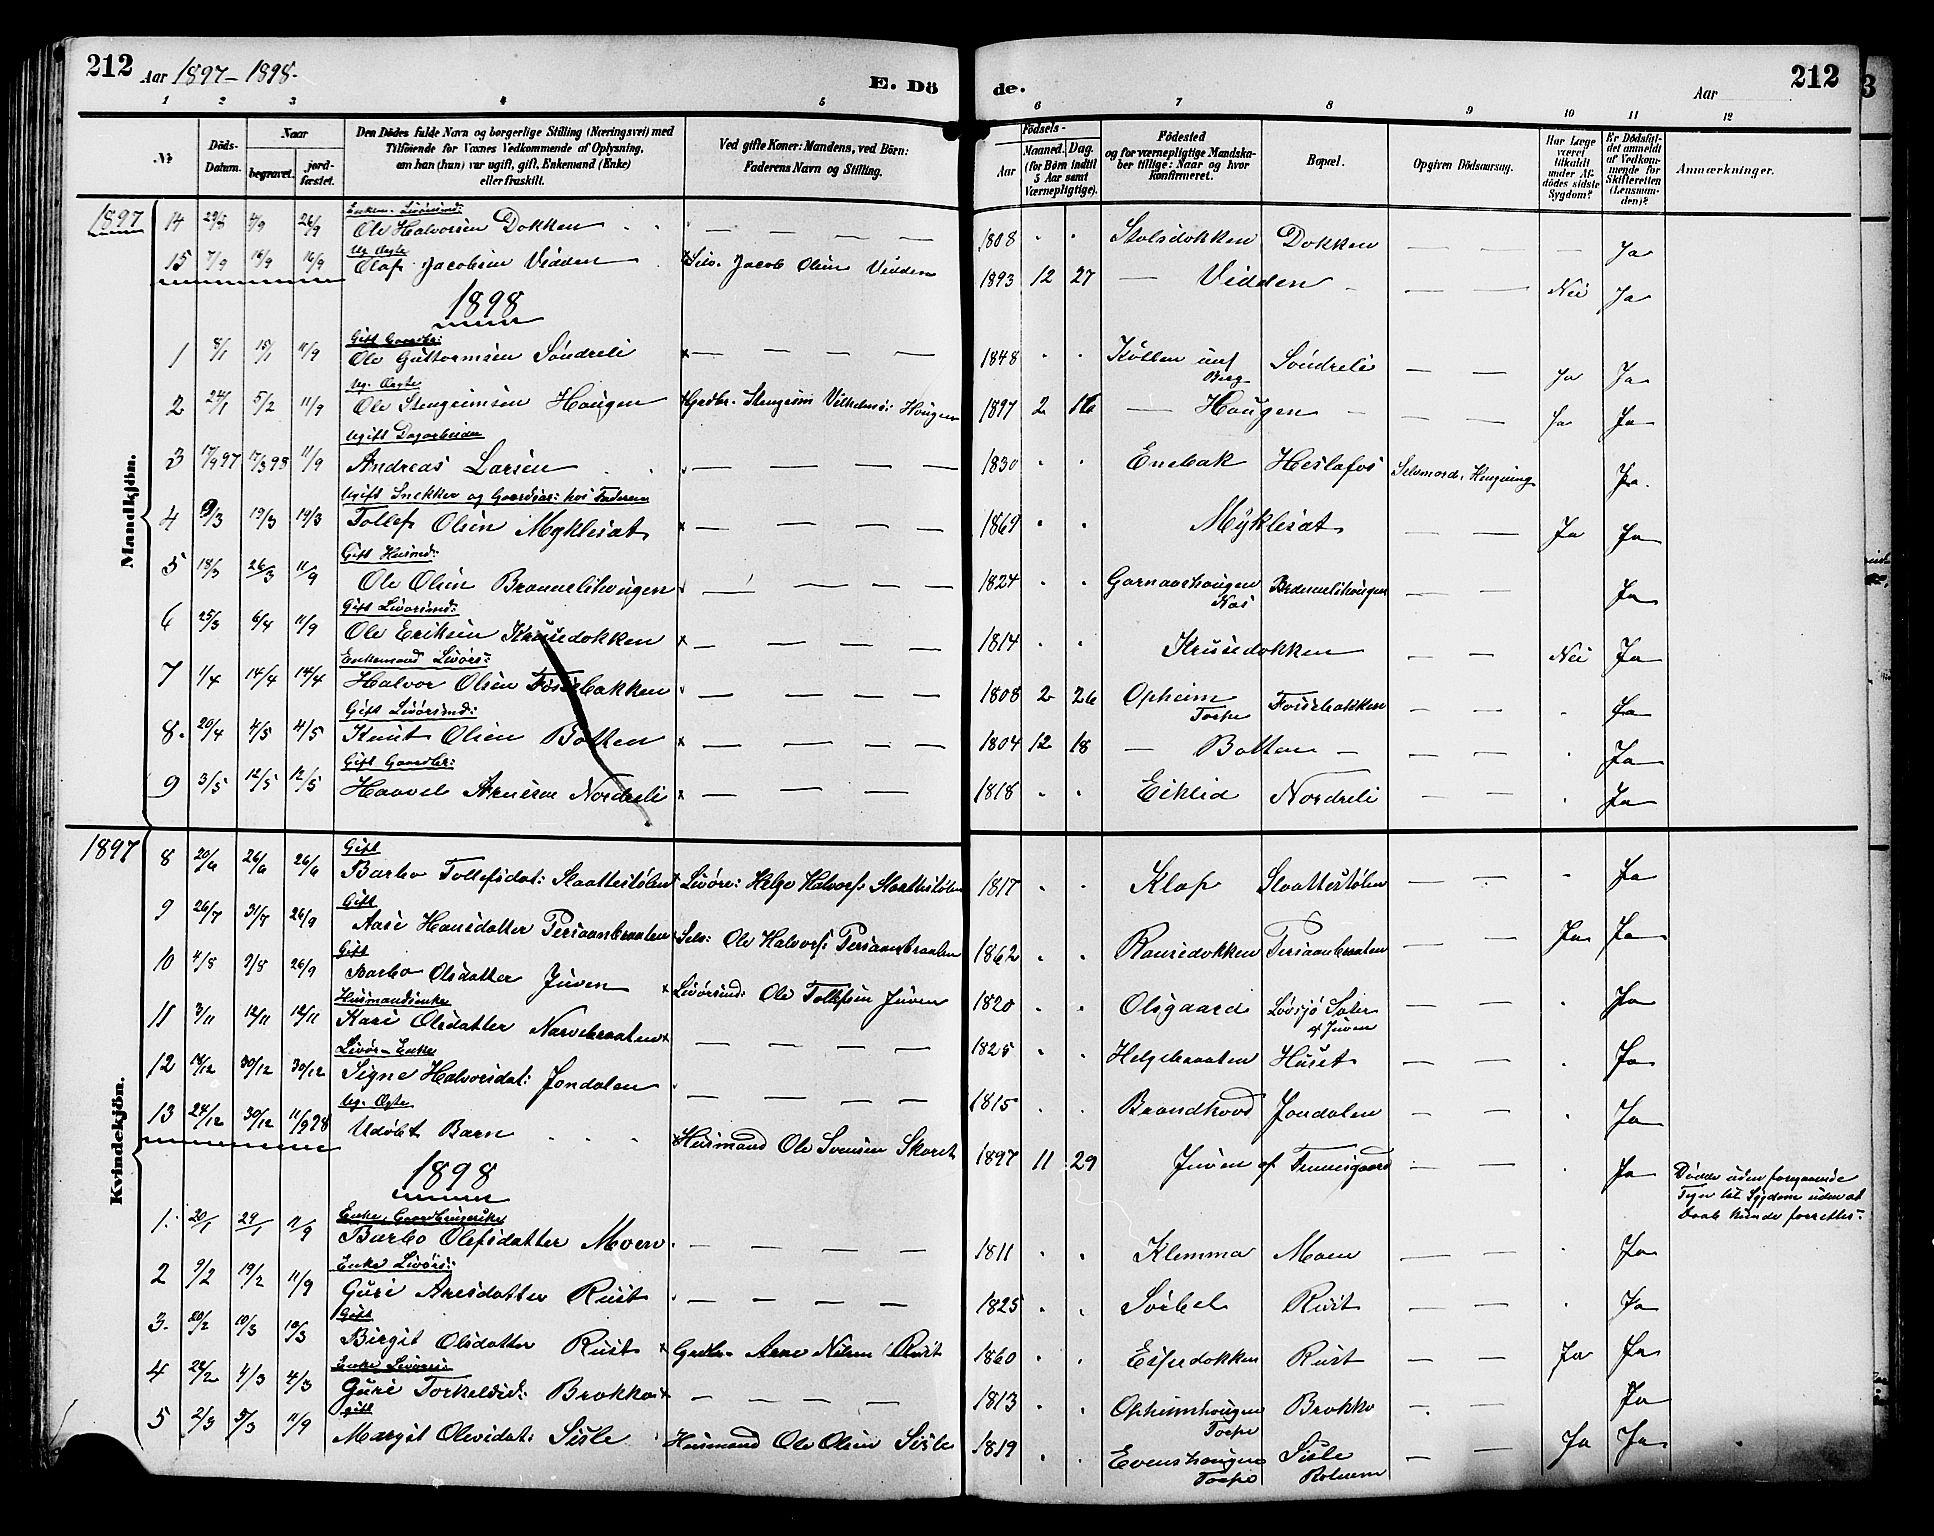 212 Aar 1897-1898. E. Dö
de. Aar 212
1 2 3 4 5 6 7 8 9 10 11 12
№ Döds-Datum. Naar begravet. jordfæstet.
Den Dödes fulde Navn og borgerlige Stilling (Næringsvei) med
Tilföiende for Voxnes Vedkommende af Oplysning,
om han (hun) var ugift, gift, Enkemand (Enke)
eller fraskilt.
Ved gifte Koner: Mandens, ved Börn:
Faderens Navn og Stilling.
Födsels- Aar Maaned. Dag. (for Börn indtil 5 Aar samt Værnepligtige).
Födested
og for værnepligtige Mandskaber tillige: Naar og hvor konfirmeret.
Bopæl.
Opgiven Dödsaarsag.
Har Læge været tilkaldt under Afdödes sidste Sygdom?
Er Dödsfaldet anmeldt af Vedkommende for Skifteretten (Lensmanden)?
Anmærkninger.
Mandkjön.
1897 14 29/8 4/9 26/9 Ole Halvorsen Dokken — — — — 1808 " " Stolsdokken Dokken — — Ja
Ug. Ægte
15 7/9 16/9 16/9 Olaf Jacobsen Vidden Selv. Jacob Olsen Vidden 1893 12 27 — Vidden — — Nei Ja
1898
Gift Gaardbr:
1 8/1 15/1 11/9 Ole Guttormsen Söndreli — — — — 1848 " " Kollen Berg Söndreli — — Ja Ja
Ug. Ægte
2 24/1 5/2 11/9 Ole Stengrimsen Haugen Grdbr. Stengrim Vilhelms: Haugen 1897 2 16 — Haugen — — Ja Ja
Ugift Dagarbeider
3 17/9 97 17/3 98 11/9 Andreas Larsen — — — — 1830 " " Enebak Heslafos Selvmord, Hengning Ja
Ugift Snekker og Gaardsar: hos Faderen
4 9/3 19/3 19/3 Tollef Olsen Myklesat — — — — 1869 " " Myklesat — — Ja Ja
Gift Husmd:
5 18/3 26/3 11/9 Ole Olsen Brommelihaugen — — — — 1824 " " Garnaashaugen Nes Brommelihaugen — — Ja
Gift Livörsmd:
6 25/3 6/4 11/9 Ole Eriksen Krusedokken — — — — 1814 " " Krusedokken — — Nei Ja
Enkemand Livörs:
7 1/4 14/4 14/4 Halvor Olsen Fossebakken — — — — 1808 2 26 Opheim Torpe Fossebakken — — Ja
Gift Livörsmd:
8. 20/4 4/5 4/5 Knut Olsen Botten — — — — 1804 12 18 — Botten — — — Ja
Gift Gaardbr:
9 3/5 12/5 12/5 Haavel Arnesen Nordreli — — — 1818 " " Eiklid Nordreli — — Ja
Kvindekjön.
Gift
1897 8 20/6 26/6 26/6 Barbo Tollefsdat: Slaattestölen Livörs: Helge Halvors: Slaattestölen 1817 " " Klap Slaattestölen — — Ja
Gift
9 26/7 31/7 26/9 Aase Hansdatter Persaanbraaten Selv: Ole Halvors: Persaanbraaten 1862 " " Ransedokken Persaanbraaten — — Ja Ja
Gift
10 4/8 9/8 26/9 Barbo Olsdatter Juven Livörsmd: Ole Tollefsen Juven 1820 " " Olsgaard Lövsjö Sæter af Juven — — Ja
Husmandsenke
11 3/11 12/11 12/11 Kari Olsdatter Narvebraaten — — — — 1825 " " Helgebraaten Huset — — Ja
Livör-Enke
12 18/12 30/12 30/12 Signe Halvorsdat: Jondalen — — — — 1815 " " Brandhovd Jondalen — — Ja
Ug. Ægte
13 24/12 30/12 11/9 98 Udöbt Barn Husmand Ole Svensen Skaret 1897 11 29 Juven af Finnesgaard — — Ja Döde uden foregaaende Tegn til Sygdom uden at Daab kunde forrettes.
1898
1. 20/1 29/1 11/9 Barbo Olefsdatter Moen — — — — 1811 " " Klemma Moen — — Ja
Enke Livörs:
2 9/2 19/2 11/9 Guri Aresdatter Rust — — — — 1825 " " Sörbel Rust — — Ja
Gift
3. 20/2 10/3 10/3 Birgit Olsdatter Rust Grdbr. Arne Nilsen Rust 1860 " " Espedokken Rust — — Ja Ja
Enke Livörs:
4 24/2 4/3 4/3 Guri Torkelsd: Brokko — — — — 1813 " " Opheimhaugen Torpe Brokko — — Ja
Gift
5 2/3 5/3 11/9 Margit Olevsdat: Sisle Husmand Ole Olsen Sisle 1819 " " Evenshaugen Torpe Sisle — — Ja Ja